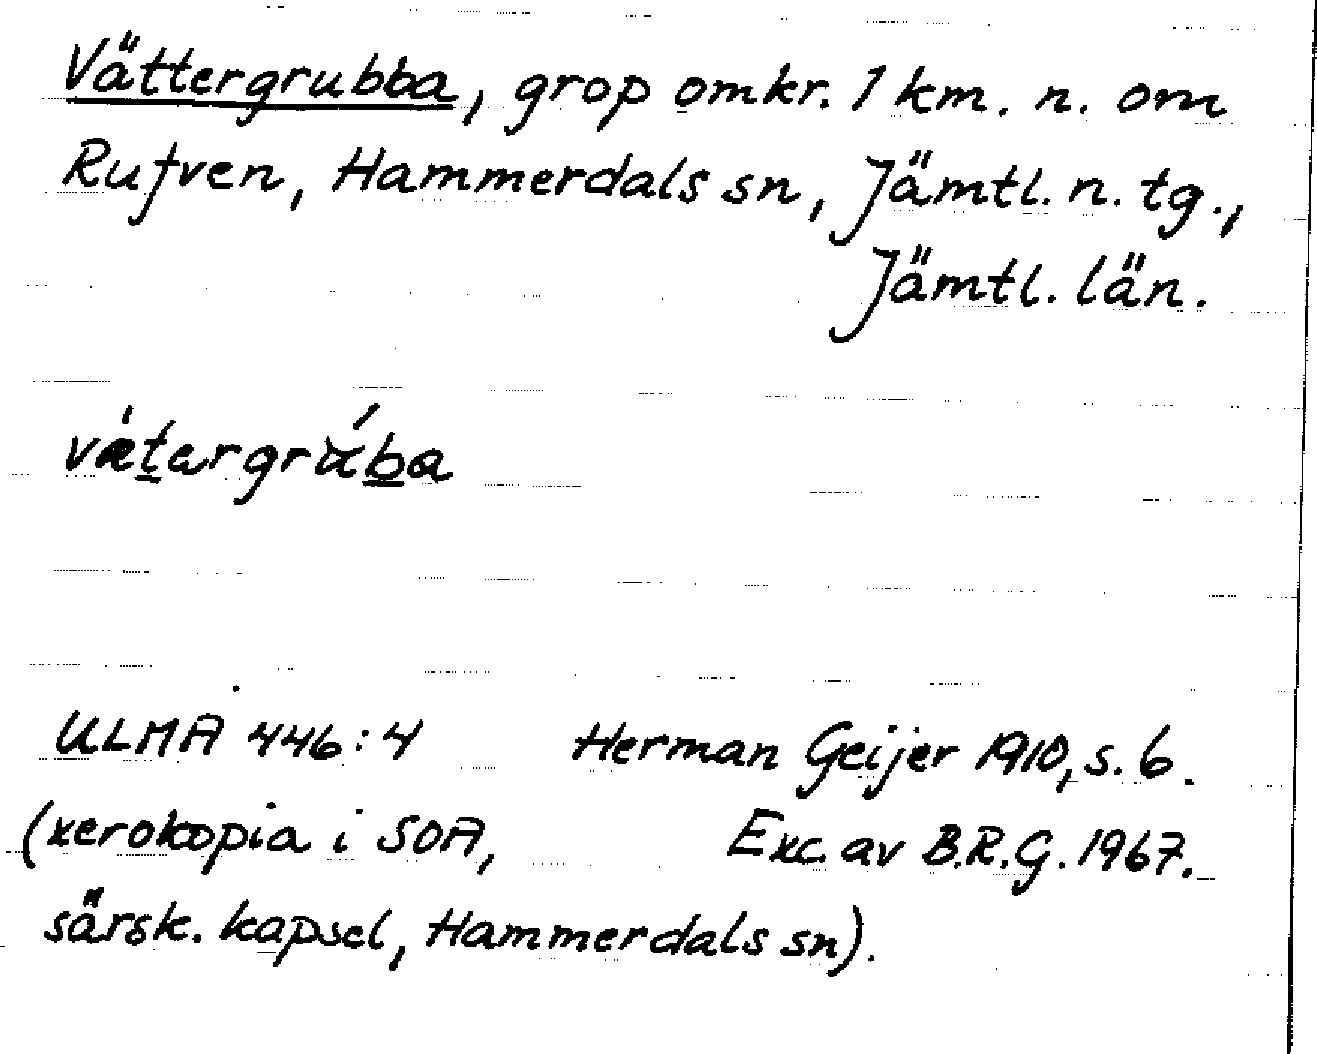 Vättergrubba, grop omkr. 1 km. n. om
Rufven, Hammerdals sn, Jämtl. n. tg.,
Jämtl. län.
ULMA 446:4 Herman Geijer 1910, s. 6.
(xerokopia i SOA, Exc. av B.R.G. 1967.
särsk. kapsel, Hammerdals sn).